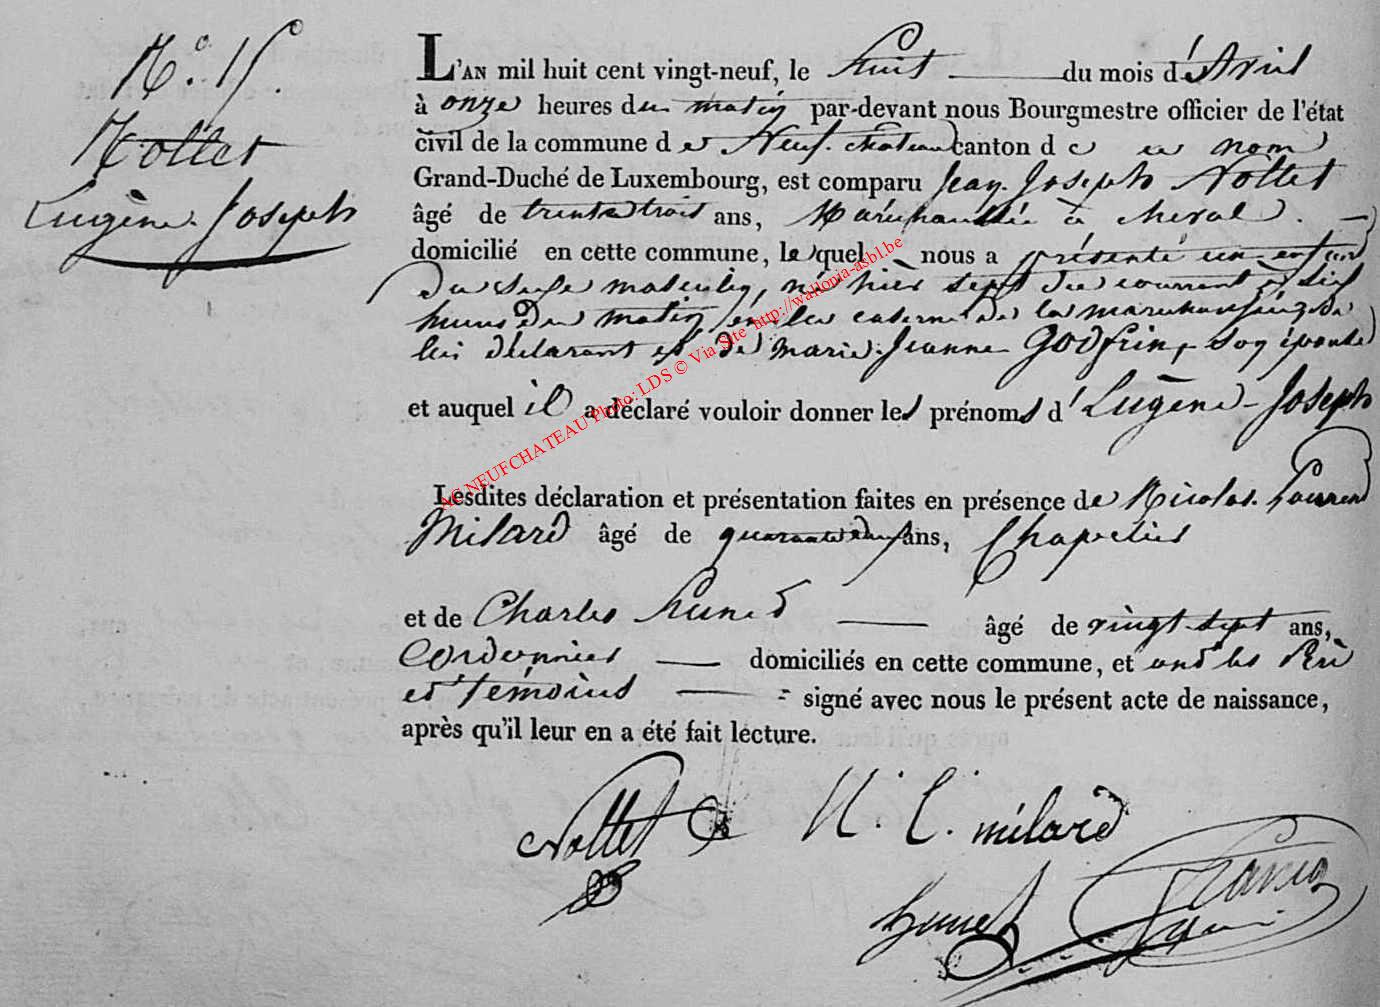 N.º 15.
Nollet
Eugène-Joseph
L'AN mil huit cent vingt-neuf, le huit du mois d'Avril
à onze heures du matin par-devant nous Bourgmestre officier de l'état
civil de la commune de Neufchateau canton de ce nom
Grand-Duché de Luxembourg, est comparu Jean-Joseph Nollet
âgé de trente trois ans, Maréchaussée à cheval.
domicilié en cette commune, lequel nous a présenté un enfant
du sexe masculin, né hier sept du courrant à six
heures du matin en la caserne de la marechaussée, de
lui déclarant et de marie-Jeanne Godfrin, son épouse
et auquel il a déclaré vouloir donner les prénoms d'Eugène-Joseph
Lesdites déclaration et présentation faites en présence de Nicolas-Laurend
Milard âgé de quarante ans, Chapelier
et de Charles hunet âgé de vingt-sept ans,
Cordonnier domiciliés en cette commune, et ont les Père
et Témoins signé avec nous le présent acte de naissance,
après qu'il leur en a été fait lecture.
Nollet
N. L. milard
hunet
AC NEUFCHATEAU Photo: LDS © Via Site http://wallonia-asbl.be